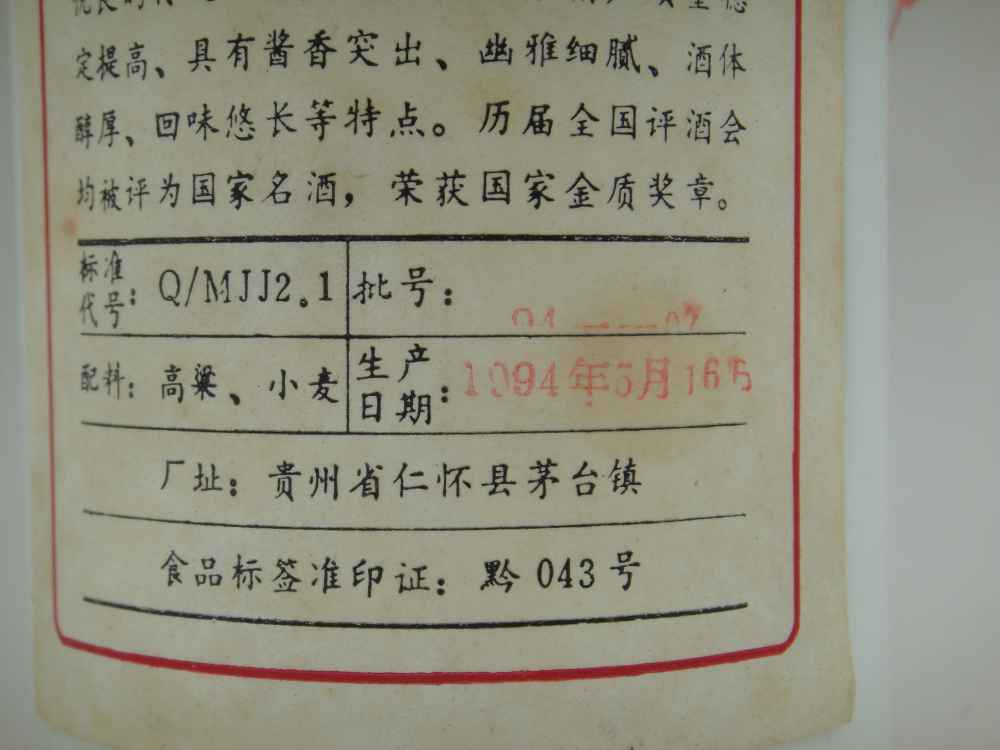 定提高、具有酱香突出、幽雅细腻、酒体
醇厚、回味悠长等特点。历届全国评酒会
均被评为国家名酒，荣获国家金质奖章。
标准代号：Q/MJJ2.1
批号：
配料：高粱、小麦
生产日期：1994年5月16
厂址：贵州省仁怀县茅台镇
食品标签准印证：黔043号